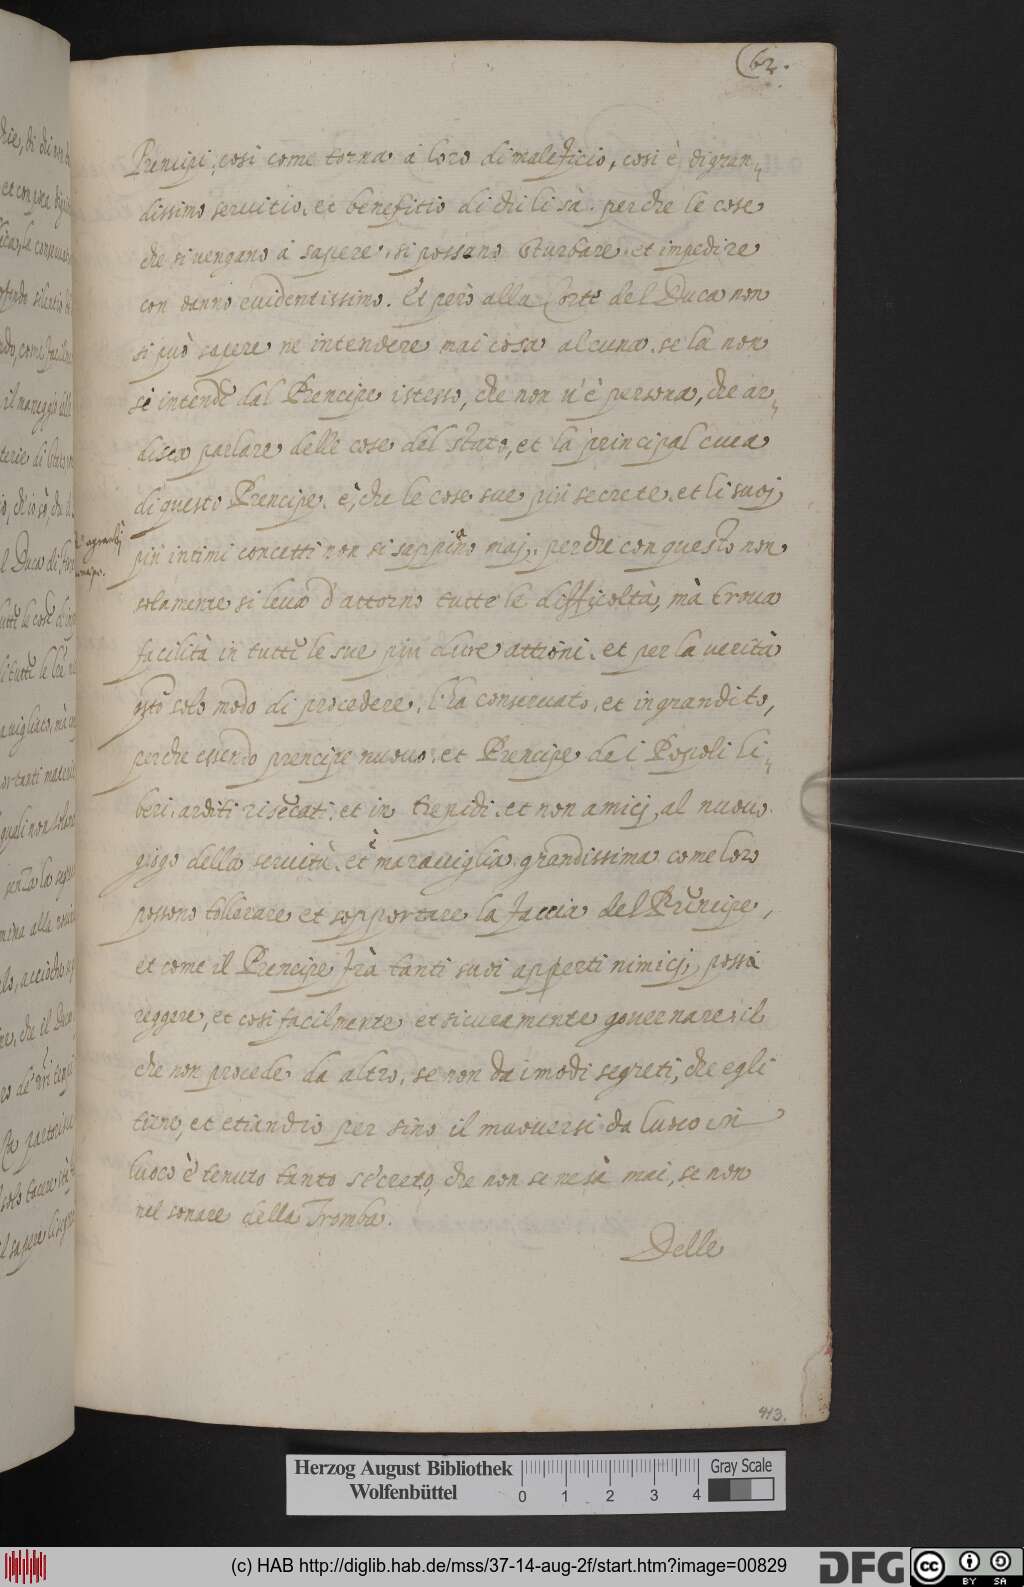 62.
Prencipi, così come torna à loro di maleficio, così è di gran„
dissimo servitio, et benefitio di chi li sà. perche le cose
che si vengano à sapere, si possano sturbare, et impedire
con danno evidentissimo. Et però alla Corte del Duca non
si può sapere ne intendere mai cosa alcuna, se la non
se intende dal Prencipe istesso, che non v'è persona, che ar„
disca parlare delle cose del stato, et la principal cura
di questo Prencipe. è, che le cose sue più secrete, et li suoj
più intimi concetti non si sappino maj. perche con questo non
solamente si leva d'attorno tutte le difficoltà, mà trova
facilità in tutte le sue più dure attioni. et per la verità
q̃sto solo modo di procedere, l'ha conservato, et ingrandito,
perche essendo prencipe nuovo, et Prencipe de i Popoli li„
beri, arditi risecati, et in trepidi, et non amicj, al nuovo
giogo della servitù. et è maraviglia grandissima come loro
possono tollarare et sopportare la faccia del Prencipe,
et come il Prencipe frà tanti suoi apperti nimicj, possa
reggere, et così facilmente et sicuramente governare, il
che non procede da altro, se non da i modi segreti, che egli
tiene, et etiandio per sino il muoversi da luoco in
luoco è tenuto tanto secreto, che non se ne sà mai, se non
nel sonare della Tromba.
Delle
413.
Herzog August Bibliothek
Wolfenbüttel
0 1 2 3 4
Gray Scale
(c) HAB http://diglib.hab.de/mss/37-14-aug-2f/start.htm?image=00829
DFG
cc BY SA